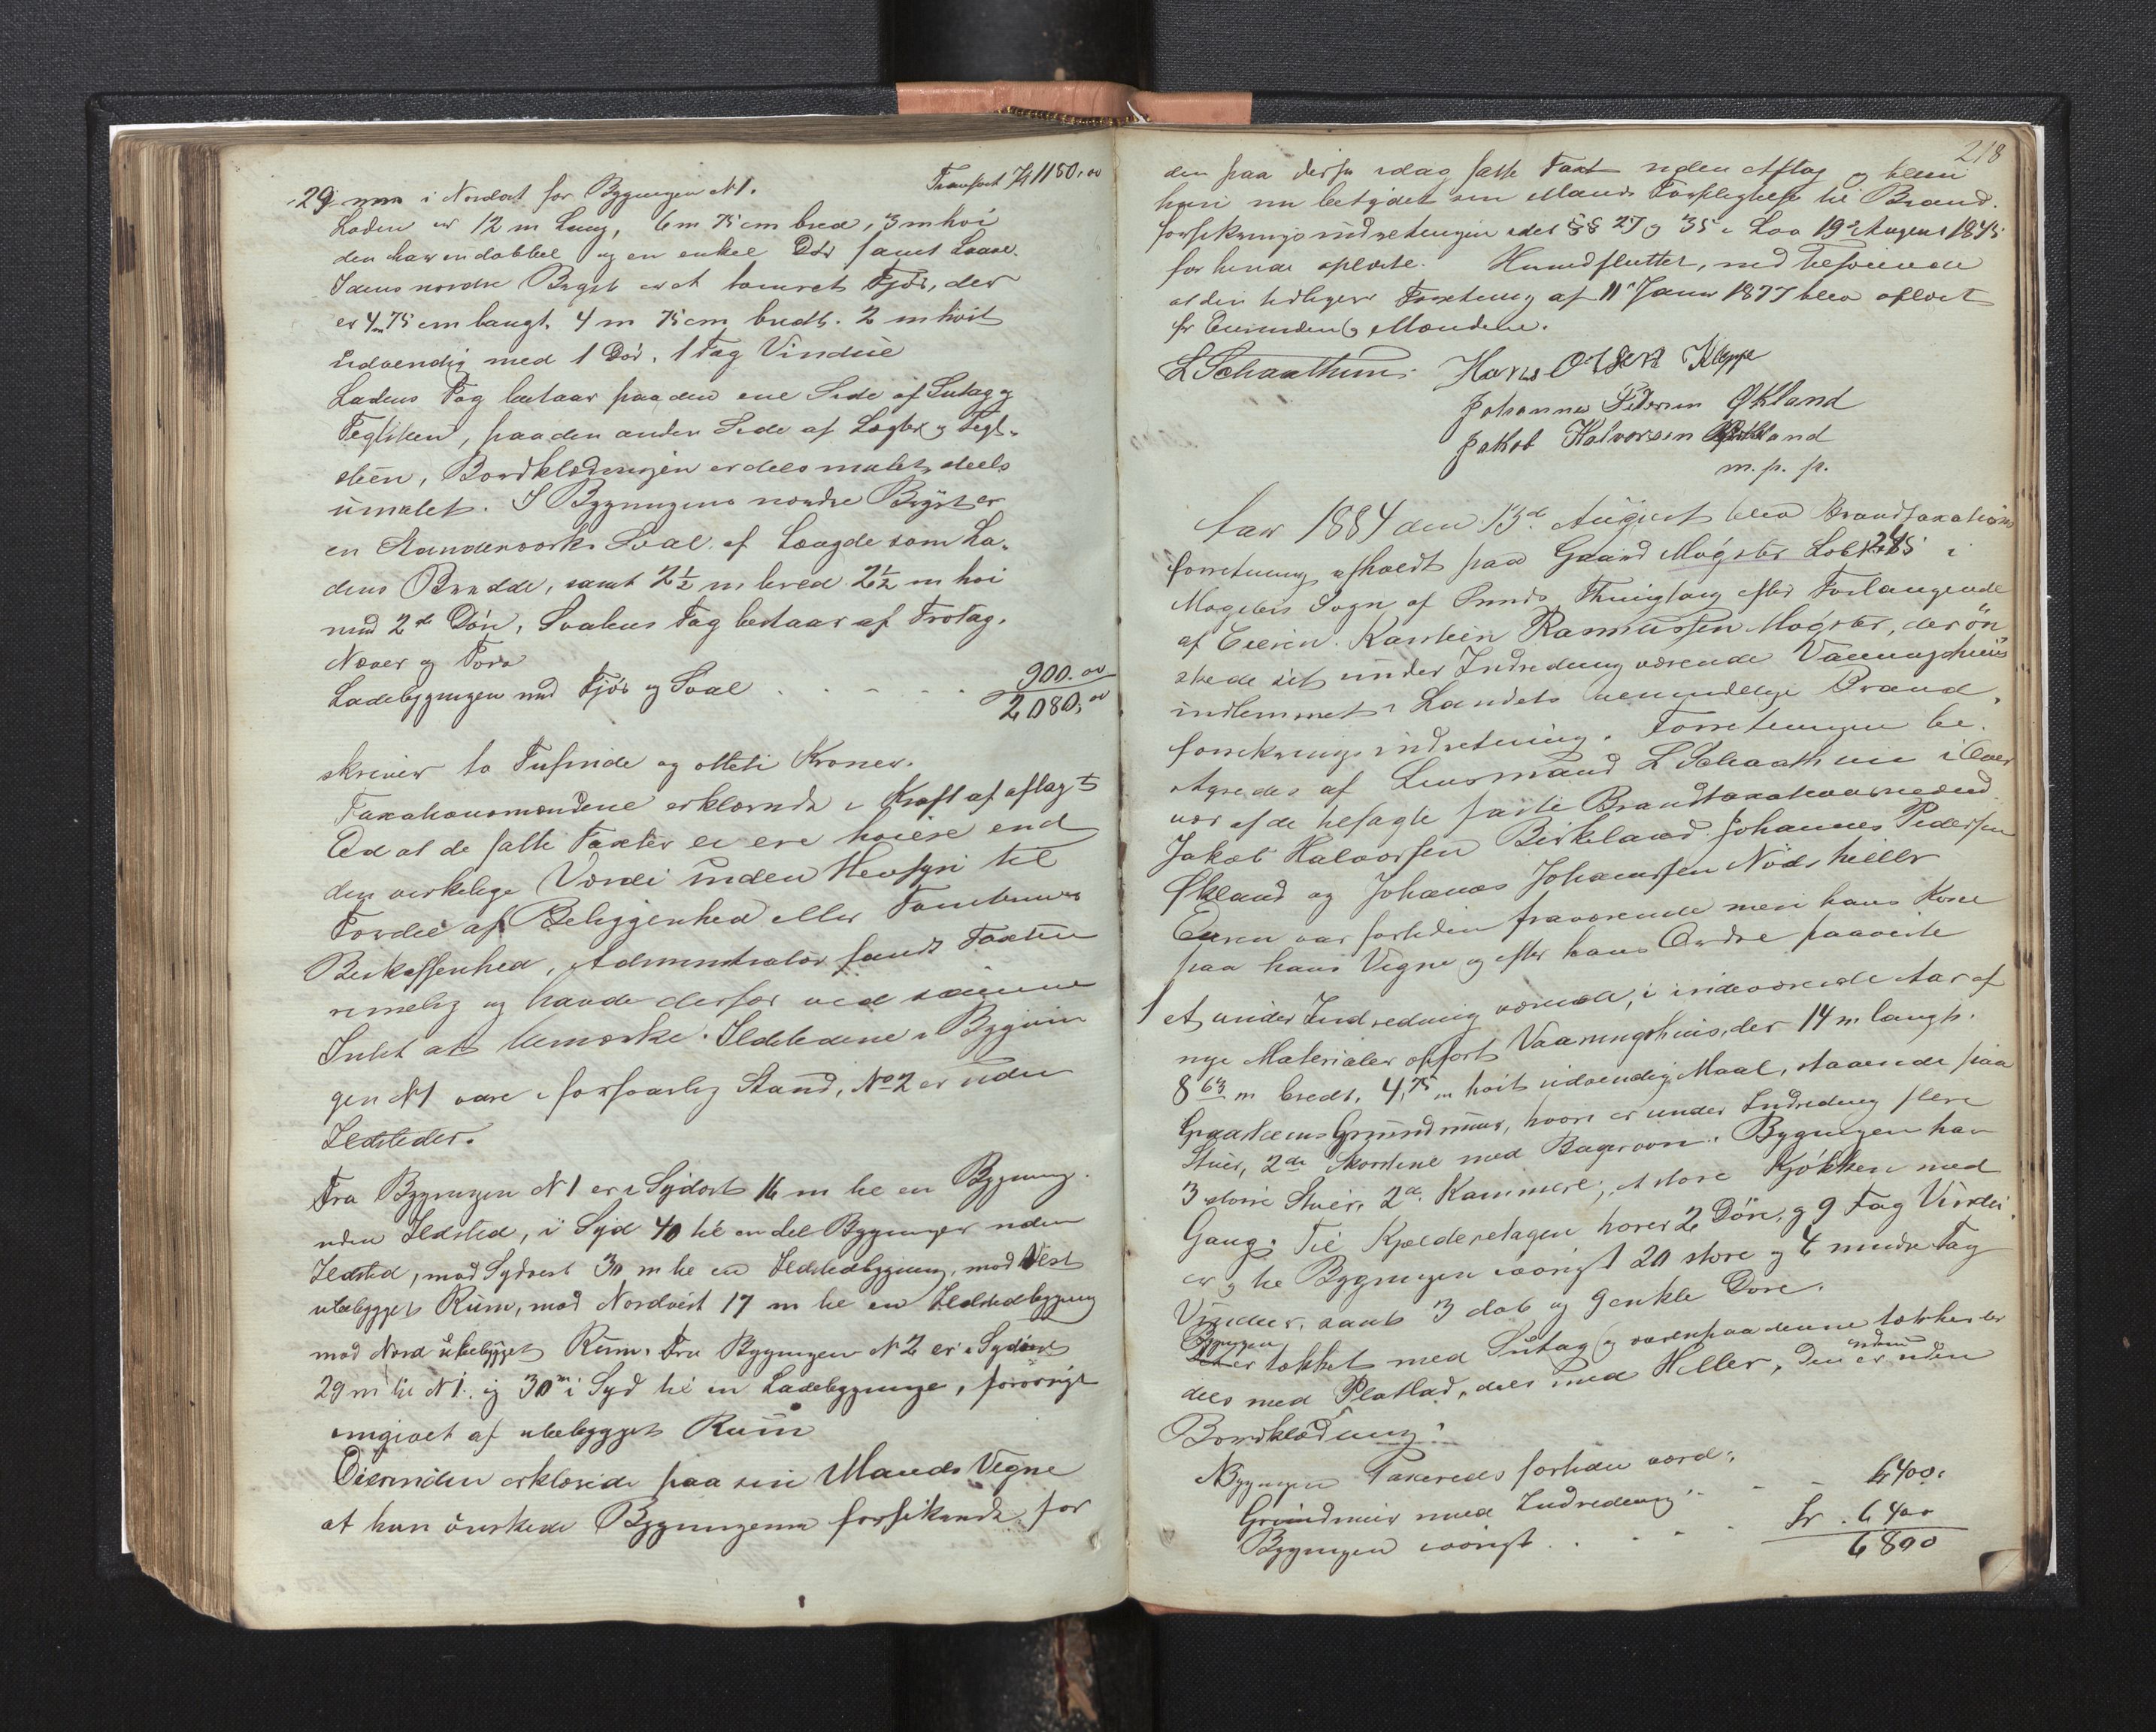 Transport Kr 1180.00
29 m i Nordost for Bygningen N 1.
Laden er 12 m Lang, 6 m 75 cm bred, 3 m høi
den har en dobbel og en enkel Dør samt Laave.
I dens nordre Bryst er et tømret Fjøs, der
er 4 m 75 cm langt, 4 m 75 cm bredt. 2 m høit
udvendig med 1 Dør, 1 Fag Vindue
Ladens Tag bestaar paa den ene Side af Sutag og
Teglsten, paa den anden Side af Lægter og Tegl-
steen, Bordklædningen er dels malet, deels
umalet. I Bygningens nordre Bryst er
en Standerværks Sval af Længde som La-
dens Bredde, samt 2½ m bred 2½ m høi
med 2de Døre, Svalens Tag bestaar af Trotag,
Næver og Torv
Ladebygningen med Fjøs og Sval 900.00
2080,00
skriver to Tusinde og otteti Kroner.
Taxationsmændene erklærede i Kraft af aflagt
Ed at de satte Taxter ei ere høiere end
den virkelige Værdi uden Hensyn til
Fordel af Beliggenhed eller Tomternes
Beskaffenhed, Administrator fandt Taxten
rimelig og havde derfor ved samme
Intet at bemærke. Ildstederne i Bygnin
gen N 1 vare i forsvarlig Stand, No 2 er uden
Ildsteder.
Fra Bygningen N 1 er i Sydost 16 m til en Bygning
uden Ildsted, i Syd 40 til en del Bygninger uden
Ildsted, mod Sydvest 30 m til en Ildstedbygning, mod Vest
ubebygget Rum, mod Nordvest 17 m til en Ildstedbygning
mod Nord ubebygget Rum. Fra Bygningen N 2 er i Sydvest
29 m til N 1. og 30 m i Syd til en Ladebygning, forøvrigt
omgivet af ubebygget Rum
Eierinden erklærede paa sin Mands Vegne
at hun ønskede Bygningerne forsikrede for
218
den paa disse idag satte Taxt uden Aftag og blev
hun nu betydet sin Mands Forpligtelse til Brand-
forsikringsindretningen idet §§ 27 og 35 i Lov 19de August 1845
for hende oplæste. Hermed sluttet, med Tilføiende
at den tidligere Forretning af 11te Januar 1877 blev oplæst
for Eierinden og Mændene.
L Schaathun. Hans Olsen Kleppe
Johannes Pedersen Økland
Jakob Halvorsen Birkland
m. p. p.
Aar 1884 den 13de August blev Brandtaxations
forretning afholdt paa Gaard Møgster Løb No 245 i
Møgsters Sogn af Sunds Thinglag efter Forlangende
af Eieren Karsten Rasmussen Møgster, der øn
skede sit under Indredning værende Vaaningshuus
indlemmet i Landets almindelige Brand-
forsikringsindretning. Forretningen be-
styredes af Lensmand L Schaathun i Over
vær af de tilsagte faste Brandtaxationsmænd
Jakob Halvorsen Birkeland. Johannes Pedersen
Økland og Johannes Johannessen Nødtsheller
Eieren var fortiden fraværende men hans Kone
paa hans Vegne og efter hans Ordre paaviste
1 et under Indredning værende, i indeværende Aar af
nye Materialer opført Vaaningshuus, der 14 m langt.
8 63 m bredt, 4,75 m høit udvendig Maal, staaende paa
Graasteens Grundmuur, hvori er under Indredning flere
Stuer, 2de Skorstene med Bagerovn. Bygningen har
3 større Stuer, 2de Kammere, et store Kjøkken med
Gang. Til Kjælderetagen hører 2 Døre, og 9 Fag Vindu
er og til Bygningen iøvrigt 20 store og 4 mindre Fag
Vinduer, samt 3 dob og 9 enkle Døre.
Bygningen er tækket med Sutag og ovenpaa denne tækker er
dels med Platlad, dels med Heller, den er uden
Bordklædning.
Bygningen Taxeredes fortiden værd:
Grundmur med Indredning kr 400.
Bygningen iøvrigt kr. 6400
6800